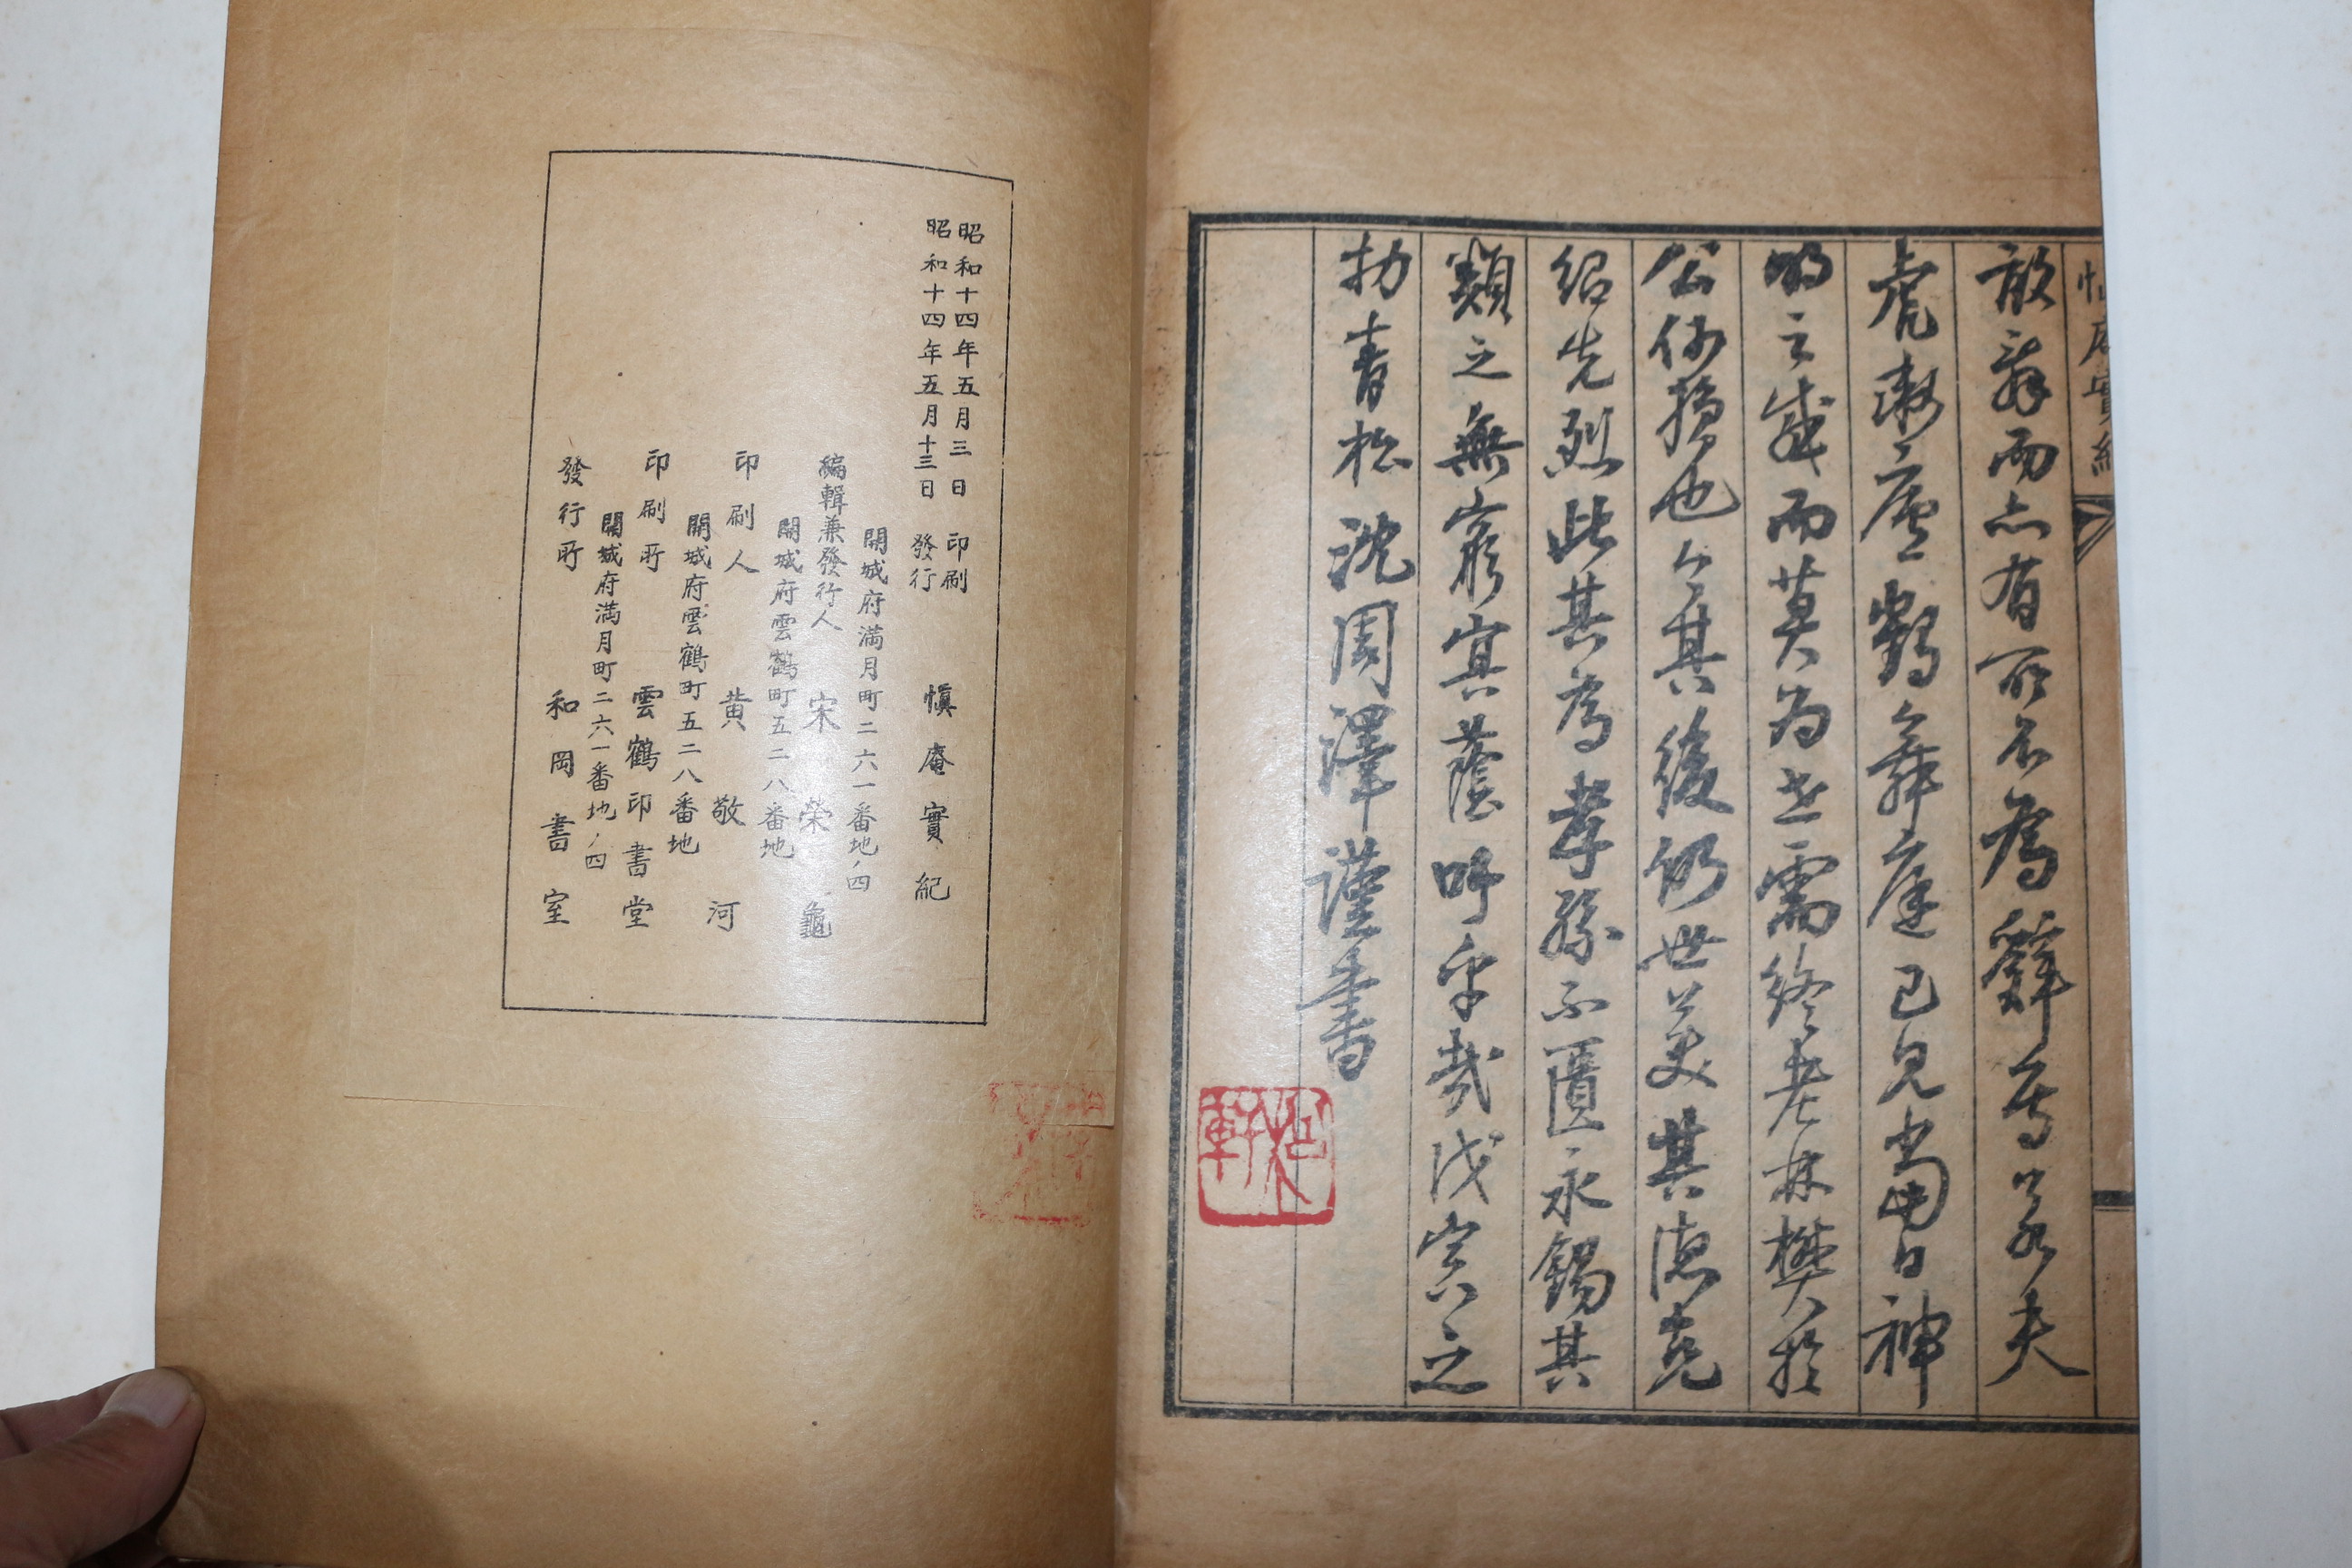 敢辭而亦有所不爲辭焉若夫
虎漱廬鶴舞庭已見當日神
明之感而莫爲世需終老林樊於
公何損也公其後仍世益美其德克
紹先烈此其爲孝孫不匱永錫其
類之無窮寘蔭吁乎哉戊寅之
青松沈周澤謹書
軒
昭和十四年五月三日印刷
昭和十四年五月十三日發行
愼庵實紀
開城府滿月町二六一番地ノ四
編輯兼發行人 宋榮龜
開城府雲鶴町五二八番地
印刷人 黃敬河
開城府雲鶴町五二八番地
印刷所 雲鶴印書堂
開城府滿月町二六一番地ノ四
發行所 和岡書室